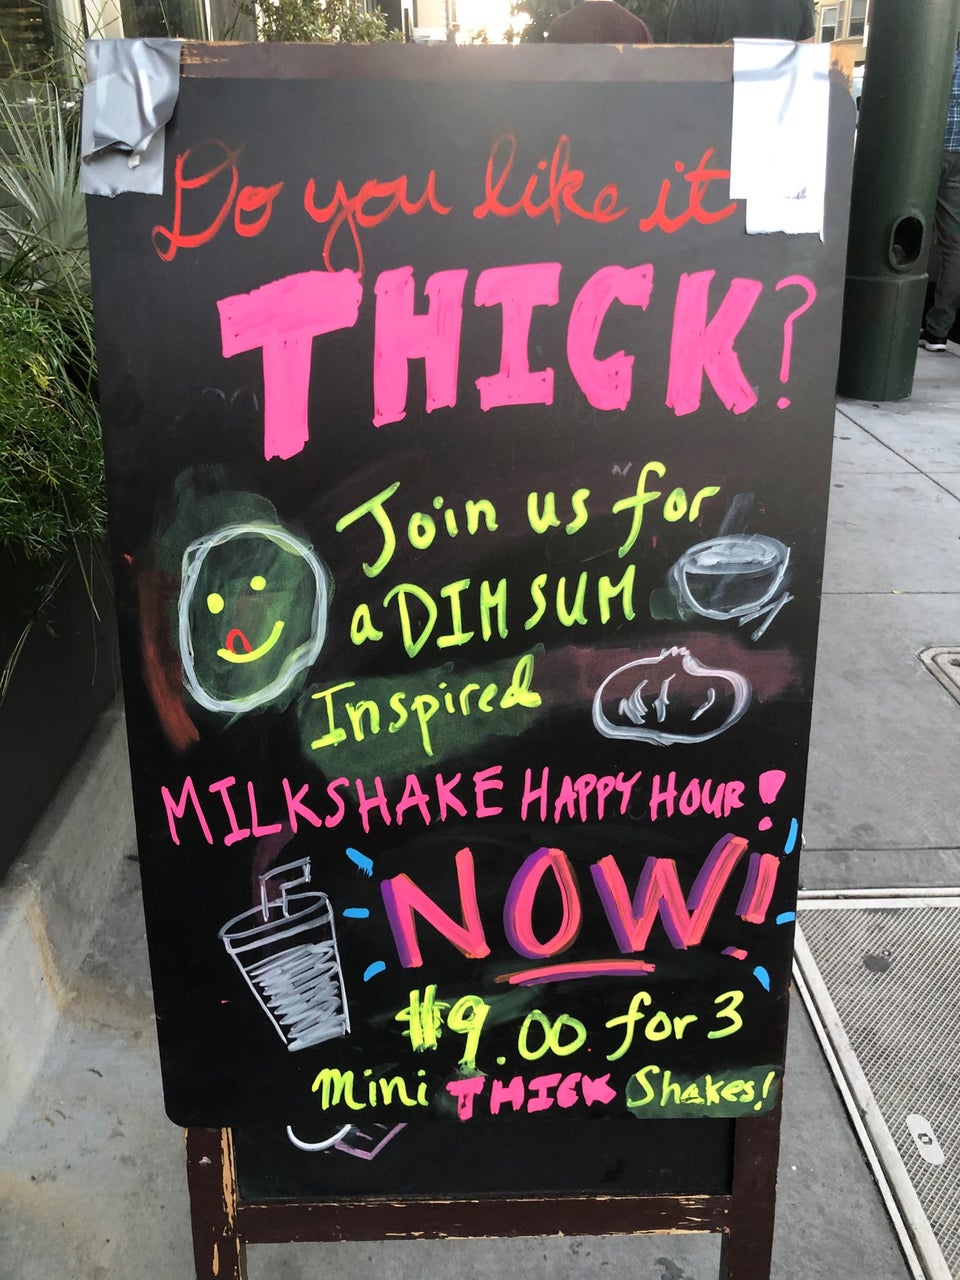 Do you like it
THICK?
Join us for
a DIM SUM
Inspired
MILKSHAKE HAPPY HOUR!
NOW!
$9.00 for 3
Mini THICK Shakes!